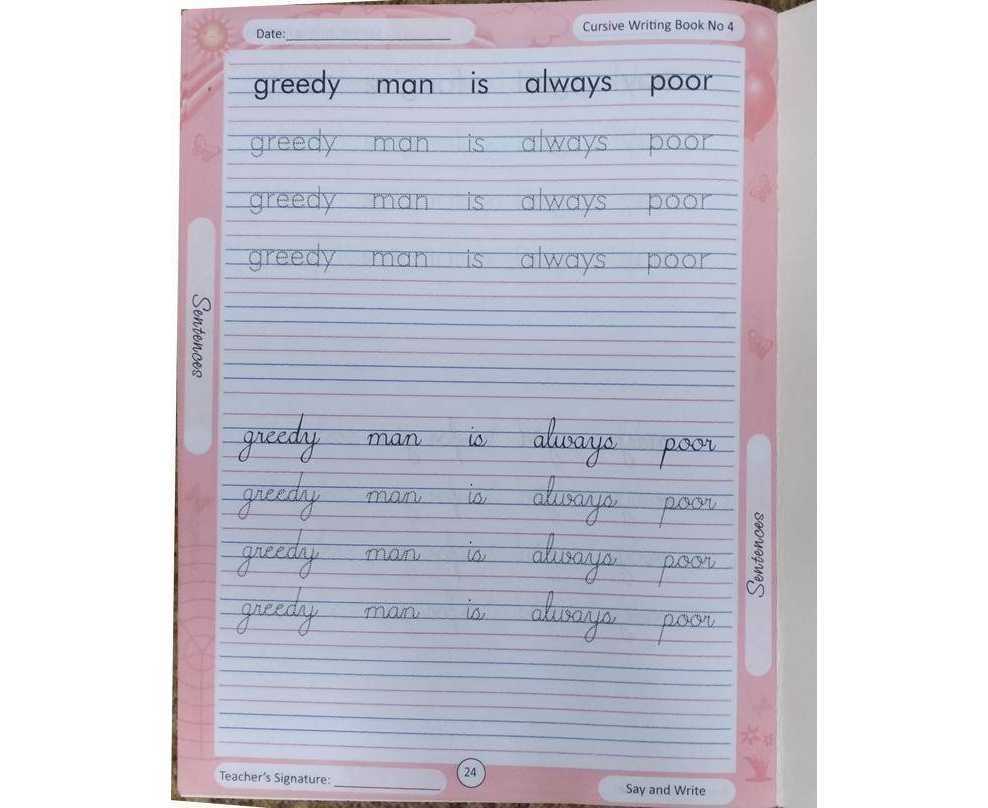 Date:
Cursive Writing Book No 4
greedy man is always poor
greedy man is always poor
greedy man is always poor
greedy man is always poor
Sentences
greedy man is always poor
greedy man is always poor
greedy man is always poor
greedy man is always poor
Sentences
Teacher's Signature:
24
Say and Write